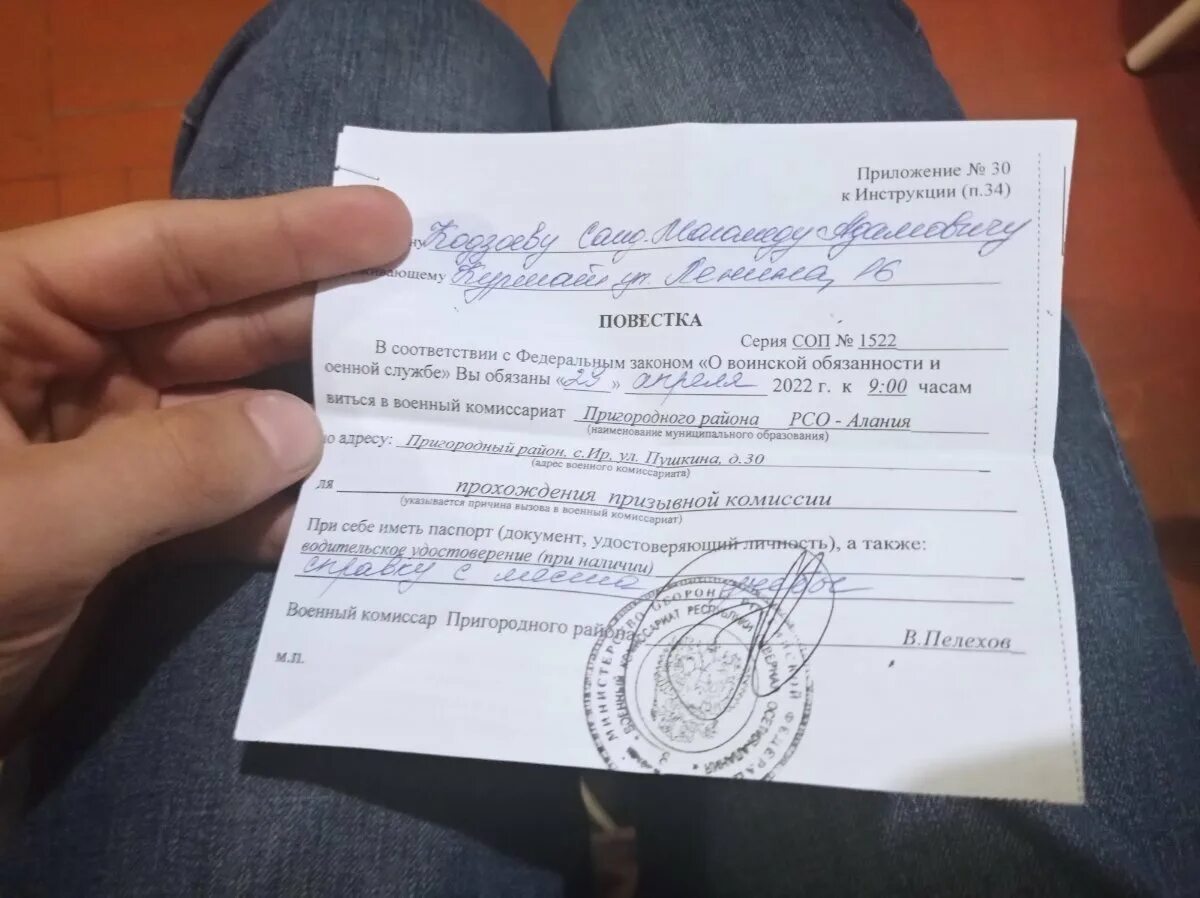 Приложение № 30
к Инструкции (п.34)
ну Кодзоеву Саид-Магомеду Адамовичу
живающему Куртат ул. Ленина, 16
ПОВЕСТКА
Серия СОП № 1522
В соответствии с Федеральным законом «О воинской обязанности и
оенной службе» Вы обязаны «29» апреля 2022 г. к 9:00 часам
виться в военный комиссариат Пригородного района РСО - Алания
(наименование муниципального образования)
о адресу: Пригородный район, с.Ир, ул. Пушкина, д.30
(адрес военного комиссариата)
ля прохождения призывной комиссии
(указывается причина вызова в военный комиссариат)
При себе иметь паспорт (документ, удостоверяющий личность), а также:
водительское удостоверение (при наличии)
справку с места учебы
Военный комиссар Пригородного района
В.Пелехов
м.п.
МИНИСТЕРСТВО ОБОРОНЫ
ВОЕННЫЙ КОМИССАРИАТ РЕСПУБЛИКИ